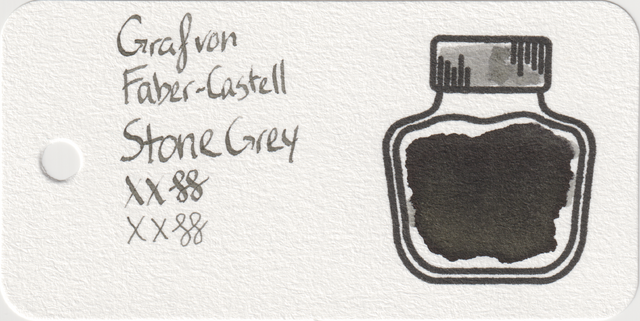 Graf von
Faber-Castell
Stone Grey
XX88
XX88